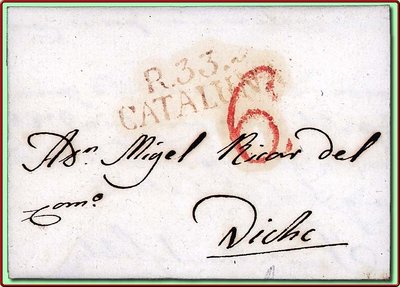 R.33.
CATALUÑA
6
A Dn Migel Ricar del
Como
Vich